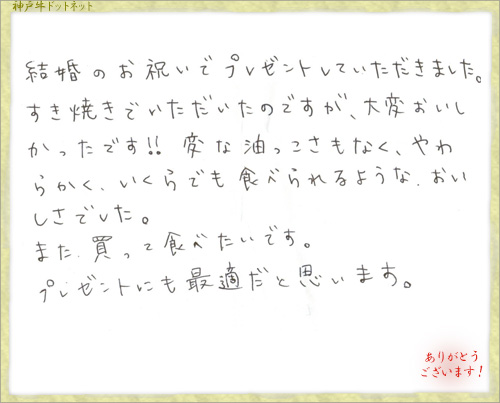 神戸牛ドットネット
結婚のお祝いでプレゼントしていただきました。
すき焼きでいただいたのですが、大変おいし
かったです!! 変な油っこさもなく、やわ
らかく、いくらでも食べられるような、おい
しさでした。
また、買って食べたいです。
プレゼントにも最適だと思います。
ありがとう
ございます!